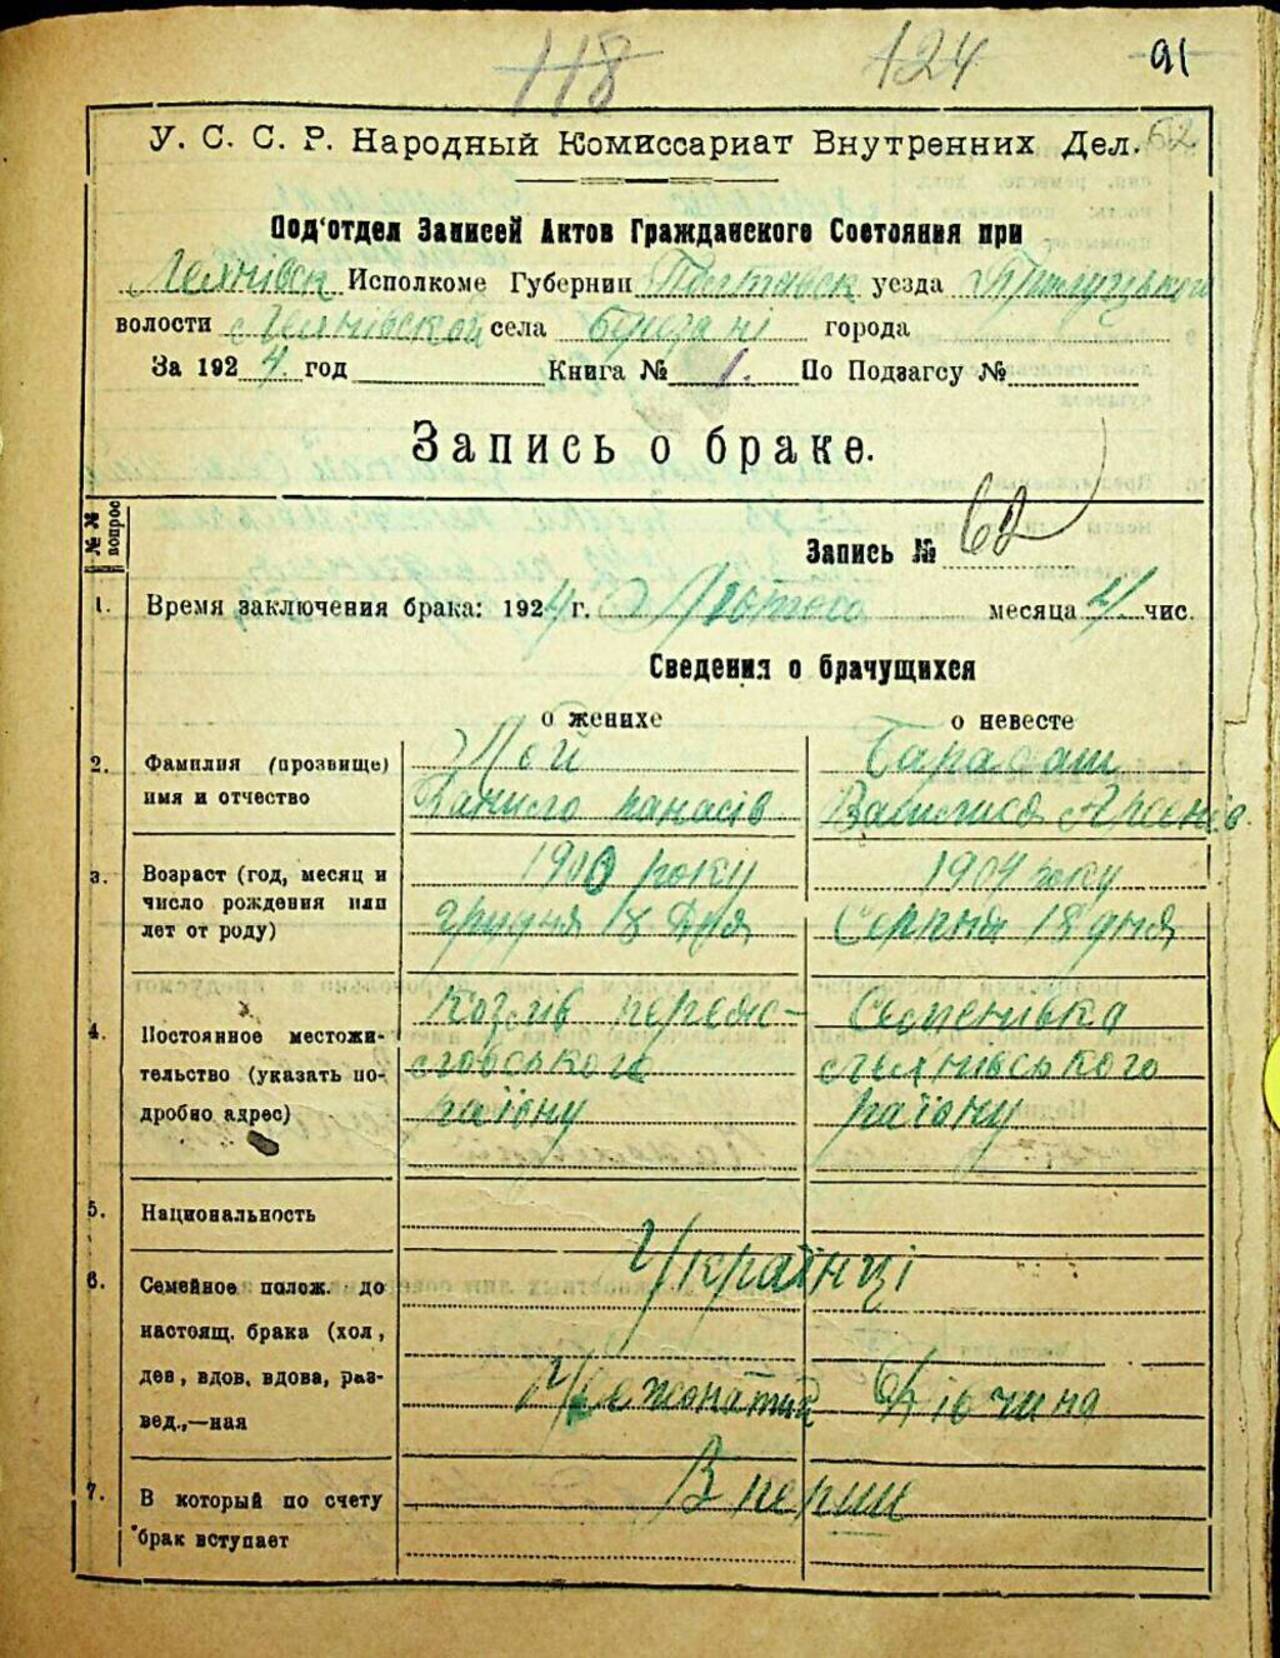 118 124 91
У. С. С. Р. Народный Комиссариат Внутренних Дел. 62
Под'отдел Записей Актов Гражданского Состояния при
Лехнівск Исполкоме Губернии Полтавск уезда Прилуцького
волости Лехнівской села Березані города
За 1924. год Книга № 1. По Подзагсу №
Запись о браке.
№№ вопрос
Запись № 62
1. Время заключения брака: 1924 г. Лютого месяца 4 чис.
Сведения о брачущихся
о женихе о невесте
2. Фамилия (прозвище) Цой Барабаш
имя и отчество Данило Панасів Василиса Арсенів.
1900 року 1904 року
3. Возраст (год, месяц и
число рождения или Грудня 18 дня Серпня 18 дня
лет от роду)
Козлів переяс- Семенівка
4. Постоянное местожи-
тельство (указать по- лхнівського
дробно адрес) району району
5. Национальность
Українці
6. Семейное полож. до
настоящ. брака (хол,
дев, вдов, вдова, раз- Нежонатий Дівчина
вед.,—ная
7. В который по счету Вперше
брак вступает